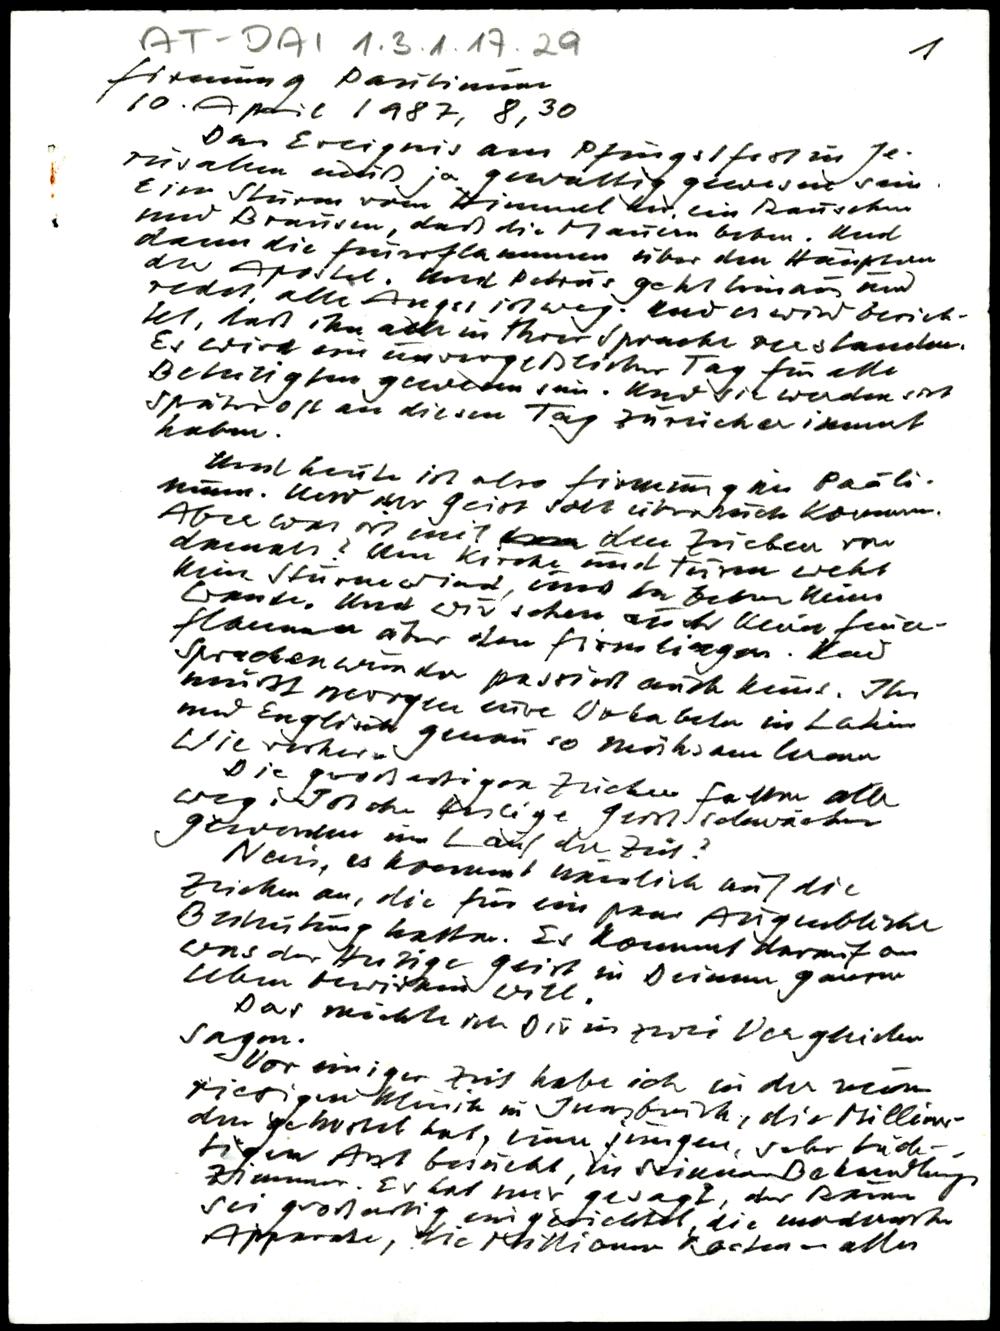 AT-DAI 1.3.1.17.29
1
Firmung Paulinum
10. April 1987, 8,30
Das Ereignis am Pfingstfest in Je-
rusalem muß ja gewaltig gewesen sein.
Ein Sturm vom Himmel her, ein Rauschen
und Brausen, daß die Mauern beben. Und
dann die Feuerflammen über den Häuptern
der Apostel. Und Petrus geht hinaus und
redet, alle Angst ist weg. Und es wird berich-
tet, daß ihn alle in Ihrer Sprache verstanden.
Es wird ein unvergeßlicher Tag für alle
Beteiligten gewesen sein. Und sie werden sich
später oft an diesen Tag zurückerinnert
haben.
Und heute ist also Firmung im Pauli-
num. Und der Geist soll über euch kommen.
Aber was ist mit den Zeichen von
damals? Um Kirche und Turm weht
kein Sturmwind, und da beben keine
Wände. Und wir sehen auch keine Feuer-
flammen über den Firmlingen. Und
Sprachenwunder passiert auch keins. Ihr
müßt morgen eure Vokabeln in Latein
und Englisch genau so mühsam lernen
wie vorher.
Die großartigen Zeichen fallen alle
weg. Ist der Heilige Geist schwächer
geworden im Lauf der Zeit?
Nein, es kommt nämlich auf die
Zeichen an, die für ein paar Augenblicke
Bedeutung hatten. Es kommt darauf an
was der Heilige Geist in Deinem ganzen
Leben bewirken will.
Das möchte ich Dir in zwei Vergleichen
sagen.
Vor einiger Zeit habe ich in der neuen
riesigen Klinik in Innsbruck, die Milliar-
den gekostet hat, einen jungen, sehr tüch-
tigen Arzt besucht, in seinem Behandlungs
zimmer. Er hat mir gesagt, der Raum
sei großartig eingerichtet, die modernsten
Apparate, die Millionen kosten – alles